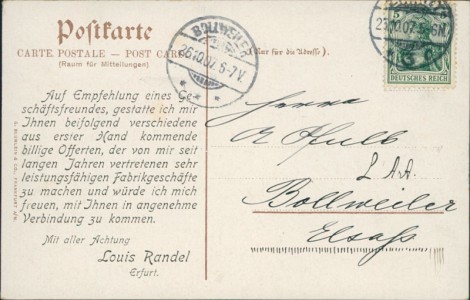 Postkarte
CARTE POSTALE — POST CARD
(Raum für Mitteilungen)
(Nur für die Adresse).
BOLLWEILER
26.10.07. 6-7V.
DEUTSCHES REICH
5
5
Auf Empfehlung eines Ge-
schäftsfreundes, gestatte ich mir
Ihnen beifolgend verschiedene
aus erster Hand kommende
billige Offerten, der von mir seit
langen Jahren vertretenen sehr
leistungsfähigen Fabrikgeschäfte
zu machen und würde ich mich
freuen, mit Ihnen in angenehme
Verbindung zu kommen.
Mit aller Achtung
Louis Randel
Erfurt.
Bollweiler
Elsaß